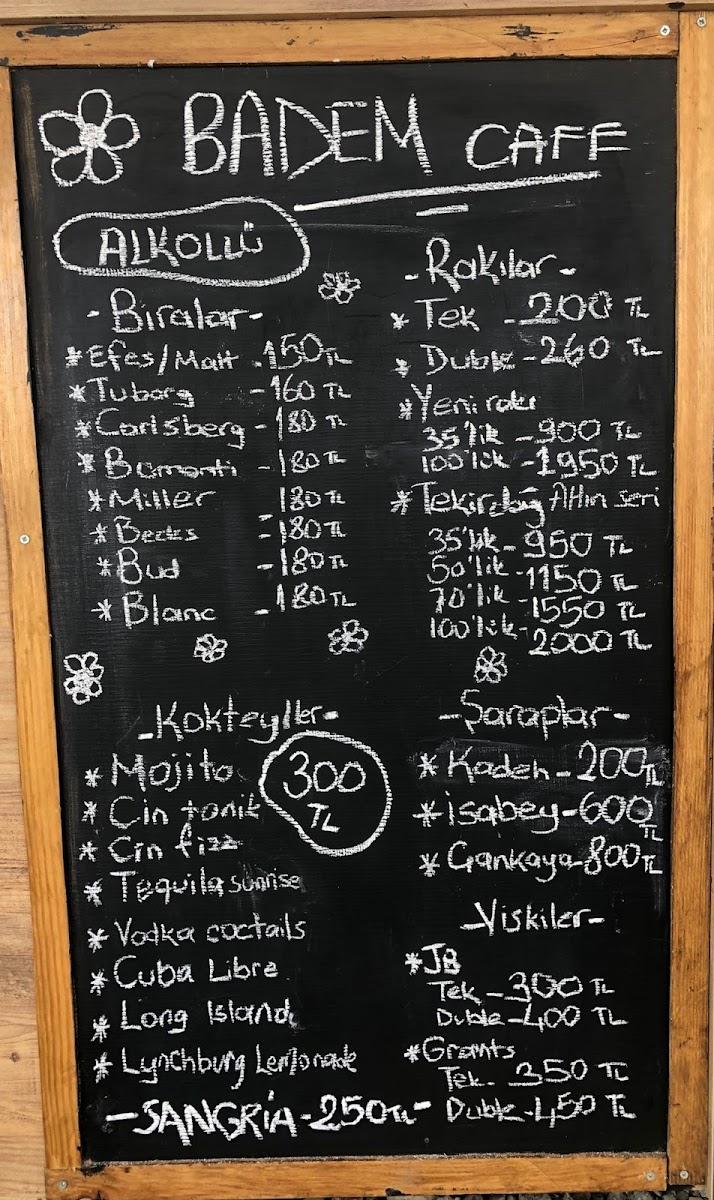 BADEM CAFE
ALKOLLÜ
-Biralar-
*Efes/Malt -150 TL
*Tuborg -160 TL
*Carlsberg -180 TL
*Bomonti -180 TL
*Miller 180 TL
*Becks -180 TL
*Bud -180 TL
*Blanc -180 TL
-Rakılar-
*Tek -200 TL
*Duble -260 TL
*Yeni rakı
35'lik -900 TL
100'lük -1950 TL
*Tekirdağ Altın seri
35'lik -950 TL
50'lik -1150 TL
70'lik -1550 TL
100'lük -2000 TL
-Kokteyller-
300 TL
*Mojito
*Cin tonik
*Cin fizz
*Tequila sunrise
*Vodka coctails
*Cuba Libre
*Long Island
*Lynchburg Lemonade
-SANGRİA-250TL-
-Şaraplar-
*Kadeh-200TL
*isabey-600TL
*Çankaya-800TL
-Viskiler-
*JB
Tek -300 TL
Duble -400 TL
*Grants
Tek- 350 TL
Duble-450 TL